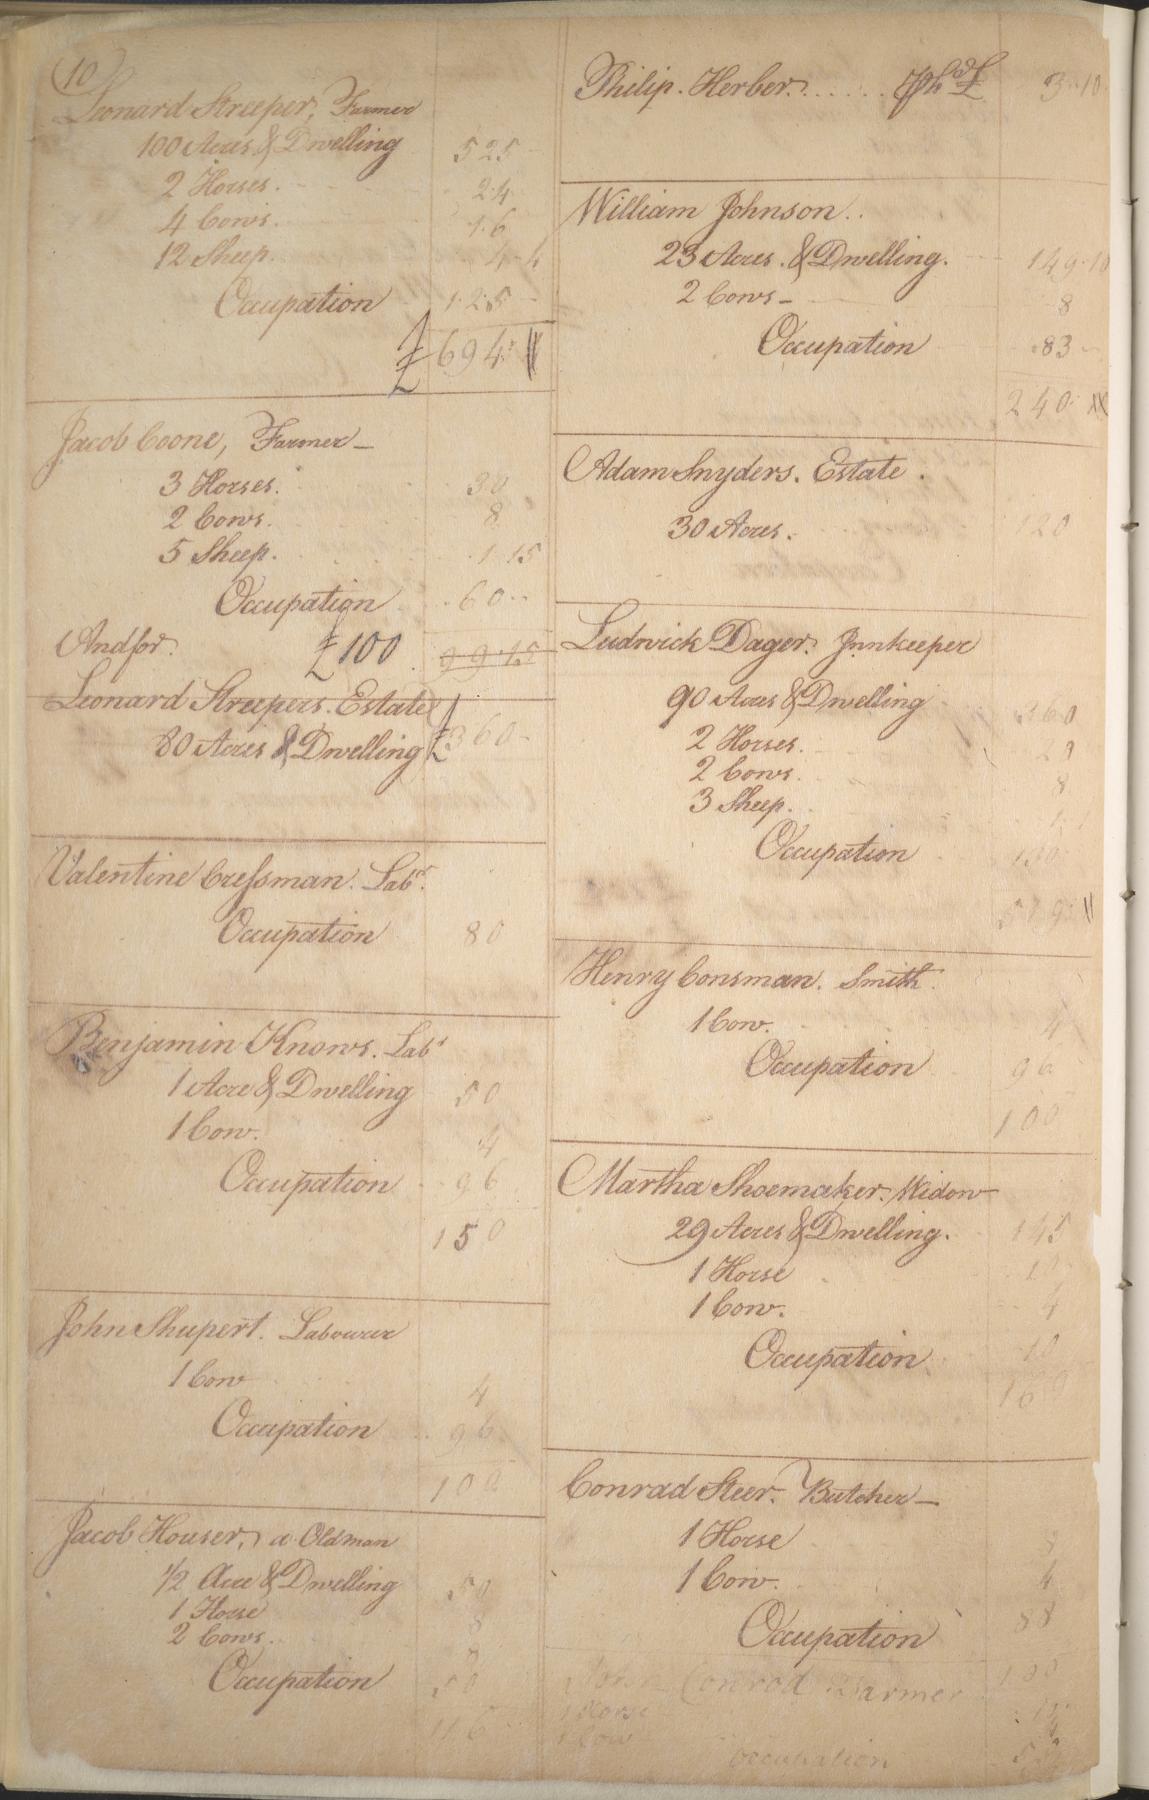 10
Leonard Streeper, Farmer
100 Acres & Dwelling 525
2 Horses. 24
4 Cows. 16
12 Sheep. 4-4
Occupation 125
£ 694
Jacob Coone, Farmer
3 Horses. 30
2 Cows. 8
5 Sheep. 1 15
Occupation 60
And for £100 99.15
Leonard Streepers. Estate
80 Acres & Dwelling £360
Valentine Cressman. Labr.
Occupation 80
Benjamin Knows. Labr
1 Acre & Dwelling 50
1 Cow. 4
Occupation 96
150
John Shupert. Labourer
1 Cow 4
Occupation 96
100
Jacob Houser, a Old man
1/2 Acre & Dwelling 50
1 Horse 8
2 Cows. 8
Occupation 50
116
Philip. Herber. 3-10
William Johnson..
23 Acres. & Dwelling. 149-10
2 Cows - 8
Occupation 83
240
Adam Snyders. Estate.
30 Acres. 120
Ludwick Dager. Innkeeper
90 Acres & Dwelling 360
2 Horses.
2 Cows. 8
3 Sheep.
Occupation
Henry Consman. Smith.
1 Cow. 4
Occupation 96
100
Martha Shoemaker. Widow
29 Acres & Dwelling. 145
1 Horse
1 Cow. 4
Occupation 10
Conrad Steer. Butcher -
1 Horse 8
1 Cow. 4
Occupation 88
100
John Conrod Farmer
1 Horse
1 Cow
Occupation